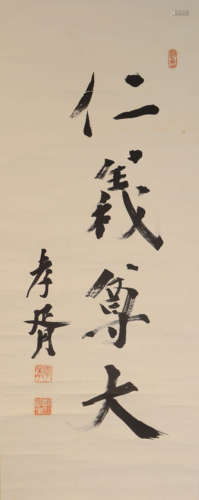 仁義尊大
孝胥